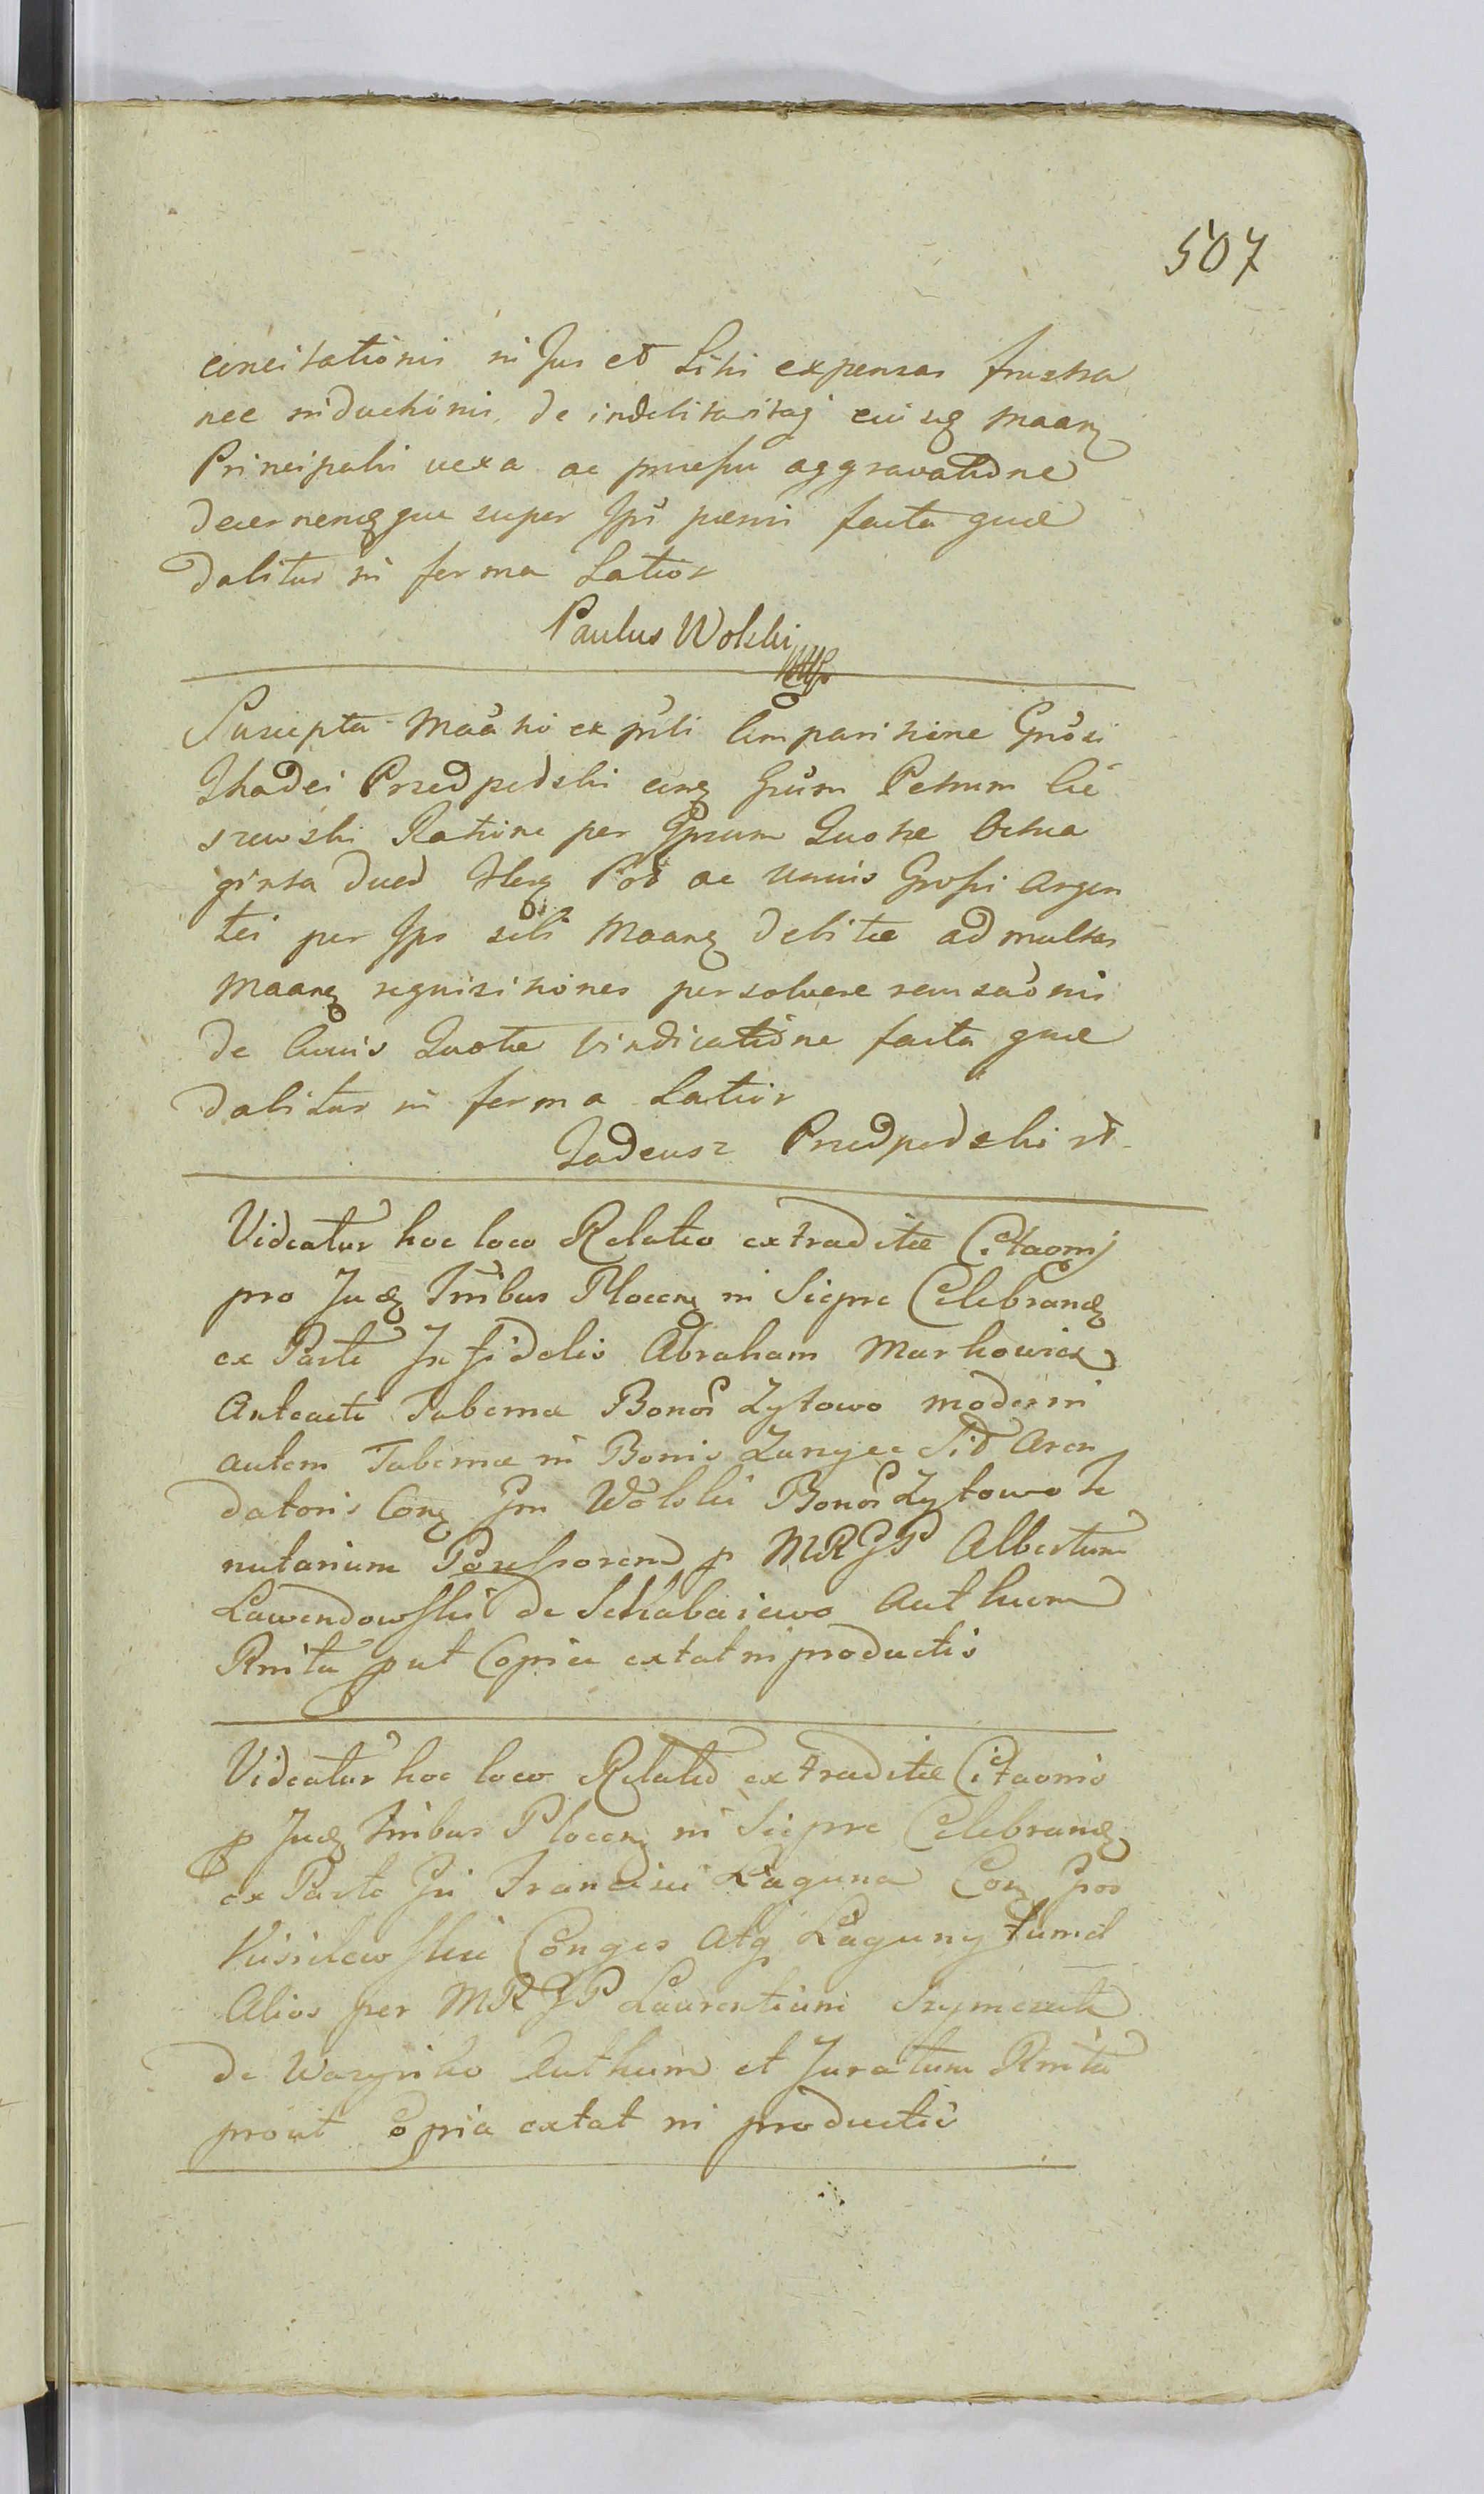 507
concitationis in Jus et Litis expensas frustra
nee inductionis de indebitavitaj eiusq Maanz
Principalis vexa ac pressu aggravatione
decernenq que super Jps poenis facta quae
dabitur in forma Latior
Paulus Wolski mp
Suscepta Maano ex pnti Comparitione Gnosi
Thadei Przedpedski conz Gnum Petrum Cie
szewski Ratione per Ipsum Quotae Octua
ginta duod Flenz Pol ac unius Grossi Argen
tei per Jps sibi Maanz debitae ad multas
Maanz requisitiones persolvere recusaonis
de Cuius Quotae vindicatione facta quae
dabitur in forma Latior
Tadeusz Przedpedski st
Videatur hoc loco Relatio extraditae Citaonis
pro Judz Tribus Plocenz in Sieprc Celebrandz
ex Parte Infidelis Abraham Markowicz
Anteacti Tabernae Bonor Zytowo moderni
autem Tabernae in Bonis Zungee Sid Aren
datoris Conz Gm Wolski Bonor Zytowo Te
nutarium Possessorem p MRGP Albertum
Lawendowski de Schabaiewo Authum
Rnita put Copia extat in productis
Videatur hoc loco Relatio extraditae Citaonis
p Judz Tribus Plocenz in Sieprc Celebrandz
ex Parte Gni Francisci Laguna Conz Gnos
Kisielewskie Conges Atq Laguny
Alios per MRGP Laurentium Szymczak
de Warzynko Authum et Juratum Rnita
prout Copia extat in productis